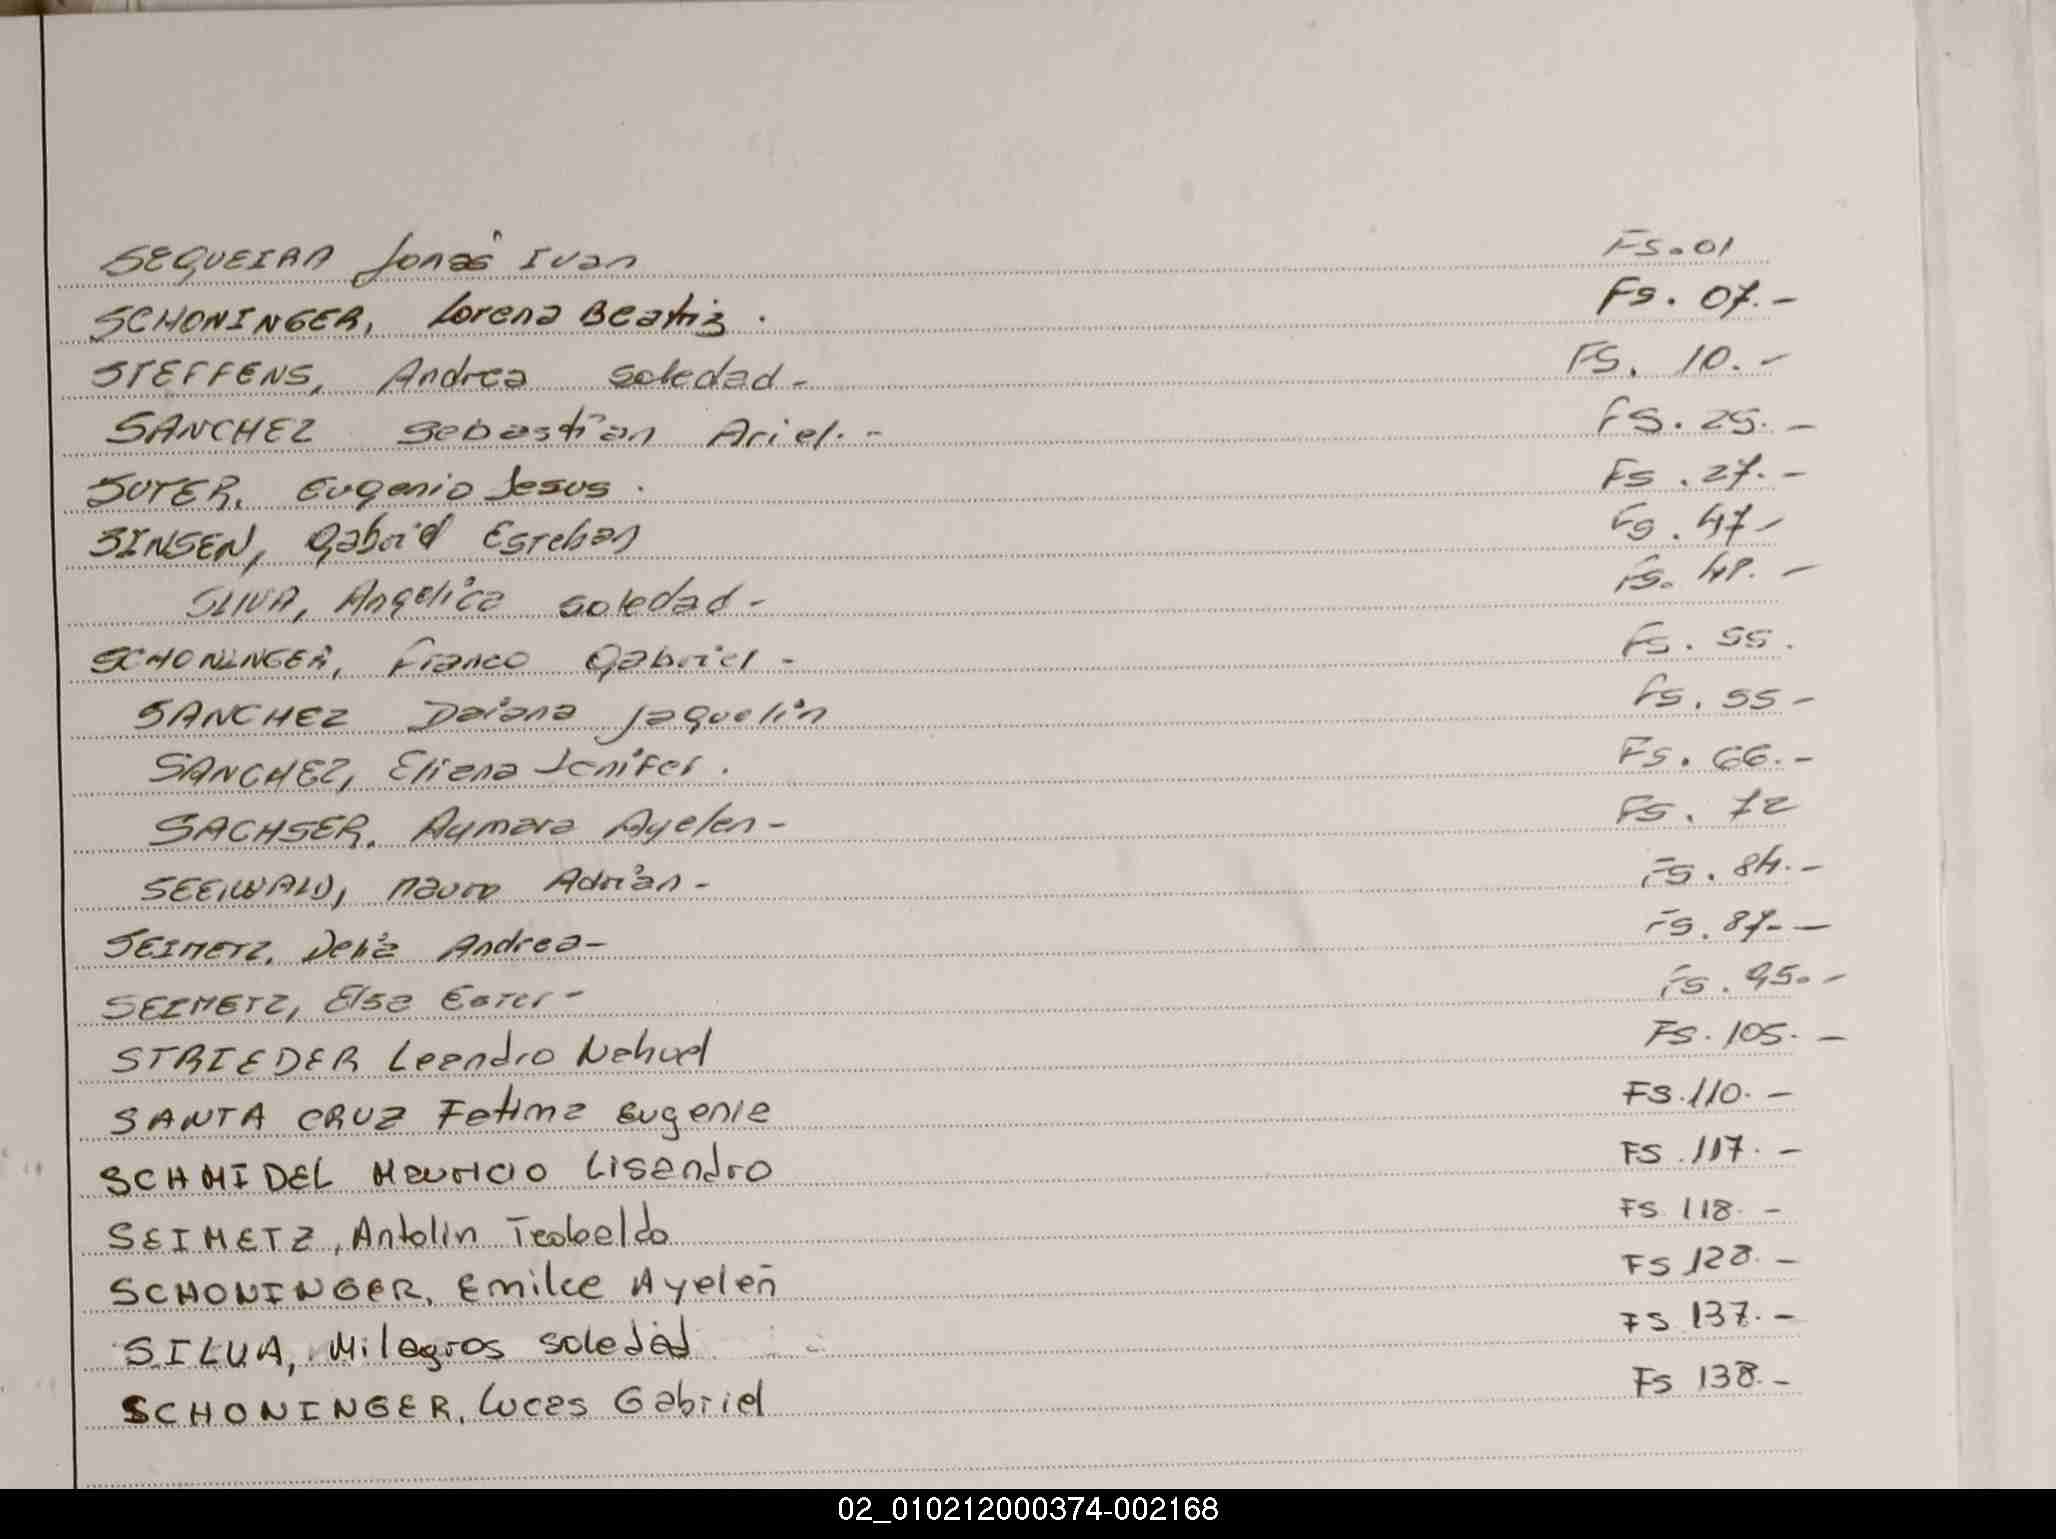 SEQUEIRA Jonás Ivan Fs. 01
SCHONINGER, Lorena Beatriz. Fs. 07.-
STEFFENS, Andrea Soledad.- FS. 10.-
SANCHEZ Sebastián Ariel.- FS. 25.-
SUTER, Eugenio Jesus. Fs. 27.-
SINSEN, Gabriel Esteban Fs. 47-
SILVA, Angélica Soledad- Fs. 48.-
SCHONINGER, Franco Gabriel- Fs. 55.
SANCHEZ Daiana Jaquelin Fs. 55-
SANCHEZ, Eliana Jenifer. Fs. 66.-
SACHSER, Aymara Ayelen- FS. 72
SEEWALD, Mauro Adrián- FS. 84.-
SEIMETZ, Delia Andrea- Fs. 87.-
SEIMETZ, Elsa Ester- Fs. 95.-
STRIEDER Leandro Nahuel FS. 105.-
SANTA CRUZ Fatima Eugenia FS. 110.-
SCHMIDEL Mauricio Lisandro FS. 117.-
SEIMETZ, Antolin Teobaldo FS 118.-
SCHONINGER, Emilce Ayelén FS 128.-
SILVA, Milagros Soledad FS 137.-
SCHONINGER, Lucas Gabriel Fs 138.-
02_010212000374-002168